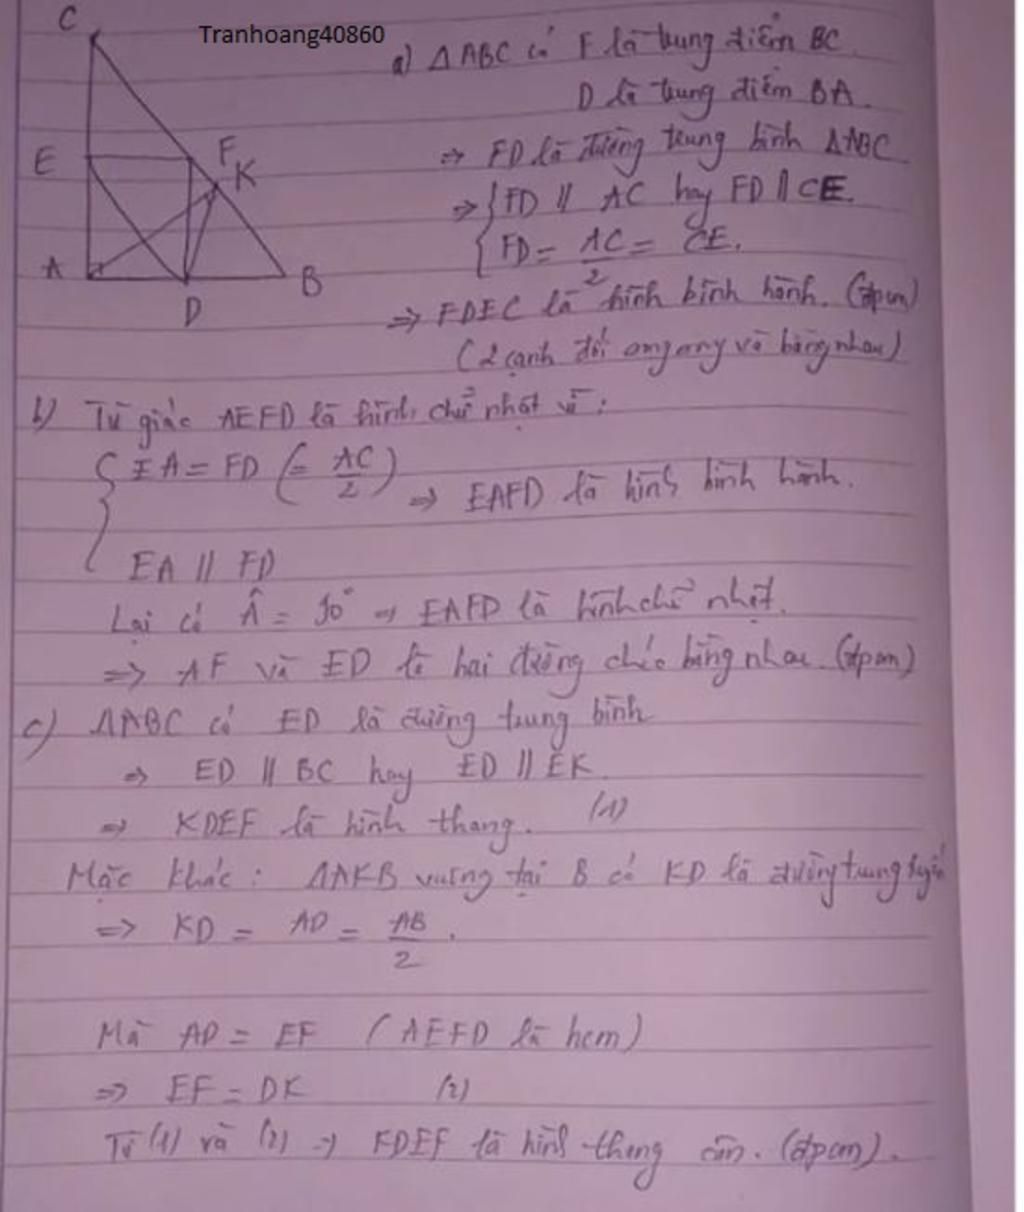 Tranhoang40860
C
E
F
K
A
D
B
a) ΔABC có F là trung điểm BC
D là trung điểm BA.
=> FD là đường trung bình ΔABC
=> { FD // AC hay FD // CE.
FD = AC/2 = CE.
=> FDEC là hình bình hành. (đpcm)
(2 cạnh đối song song và bằng nhau)
b) Tứ giác AEFD là hình chữ nhật vì:
{ EA = FD (= AC/2) => EAFD là hình bình hành.
EA // FD
Lại có Â = 90° => EAFD là hình chữ nhật.
=> AF và ED là hai đường chéo bằng nhau. (đpcm)
c) ΔABC có ED là đường trung bình
=> ED // BC hay ED // EK.
=> KDEF là hình thang. (1)
Mặc khác: ΔAKB vuông tại B có KD là đường trung tuyến
=> KD = AD = AB/2.
Mà AD = EF (AEFD là hcm)
=> EF = DK (2)
Từ (1) và (2) => KDEF là hình thang cân. (đpcm).